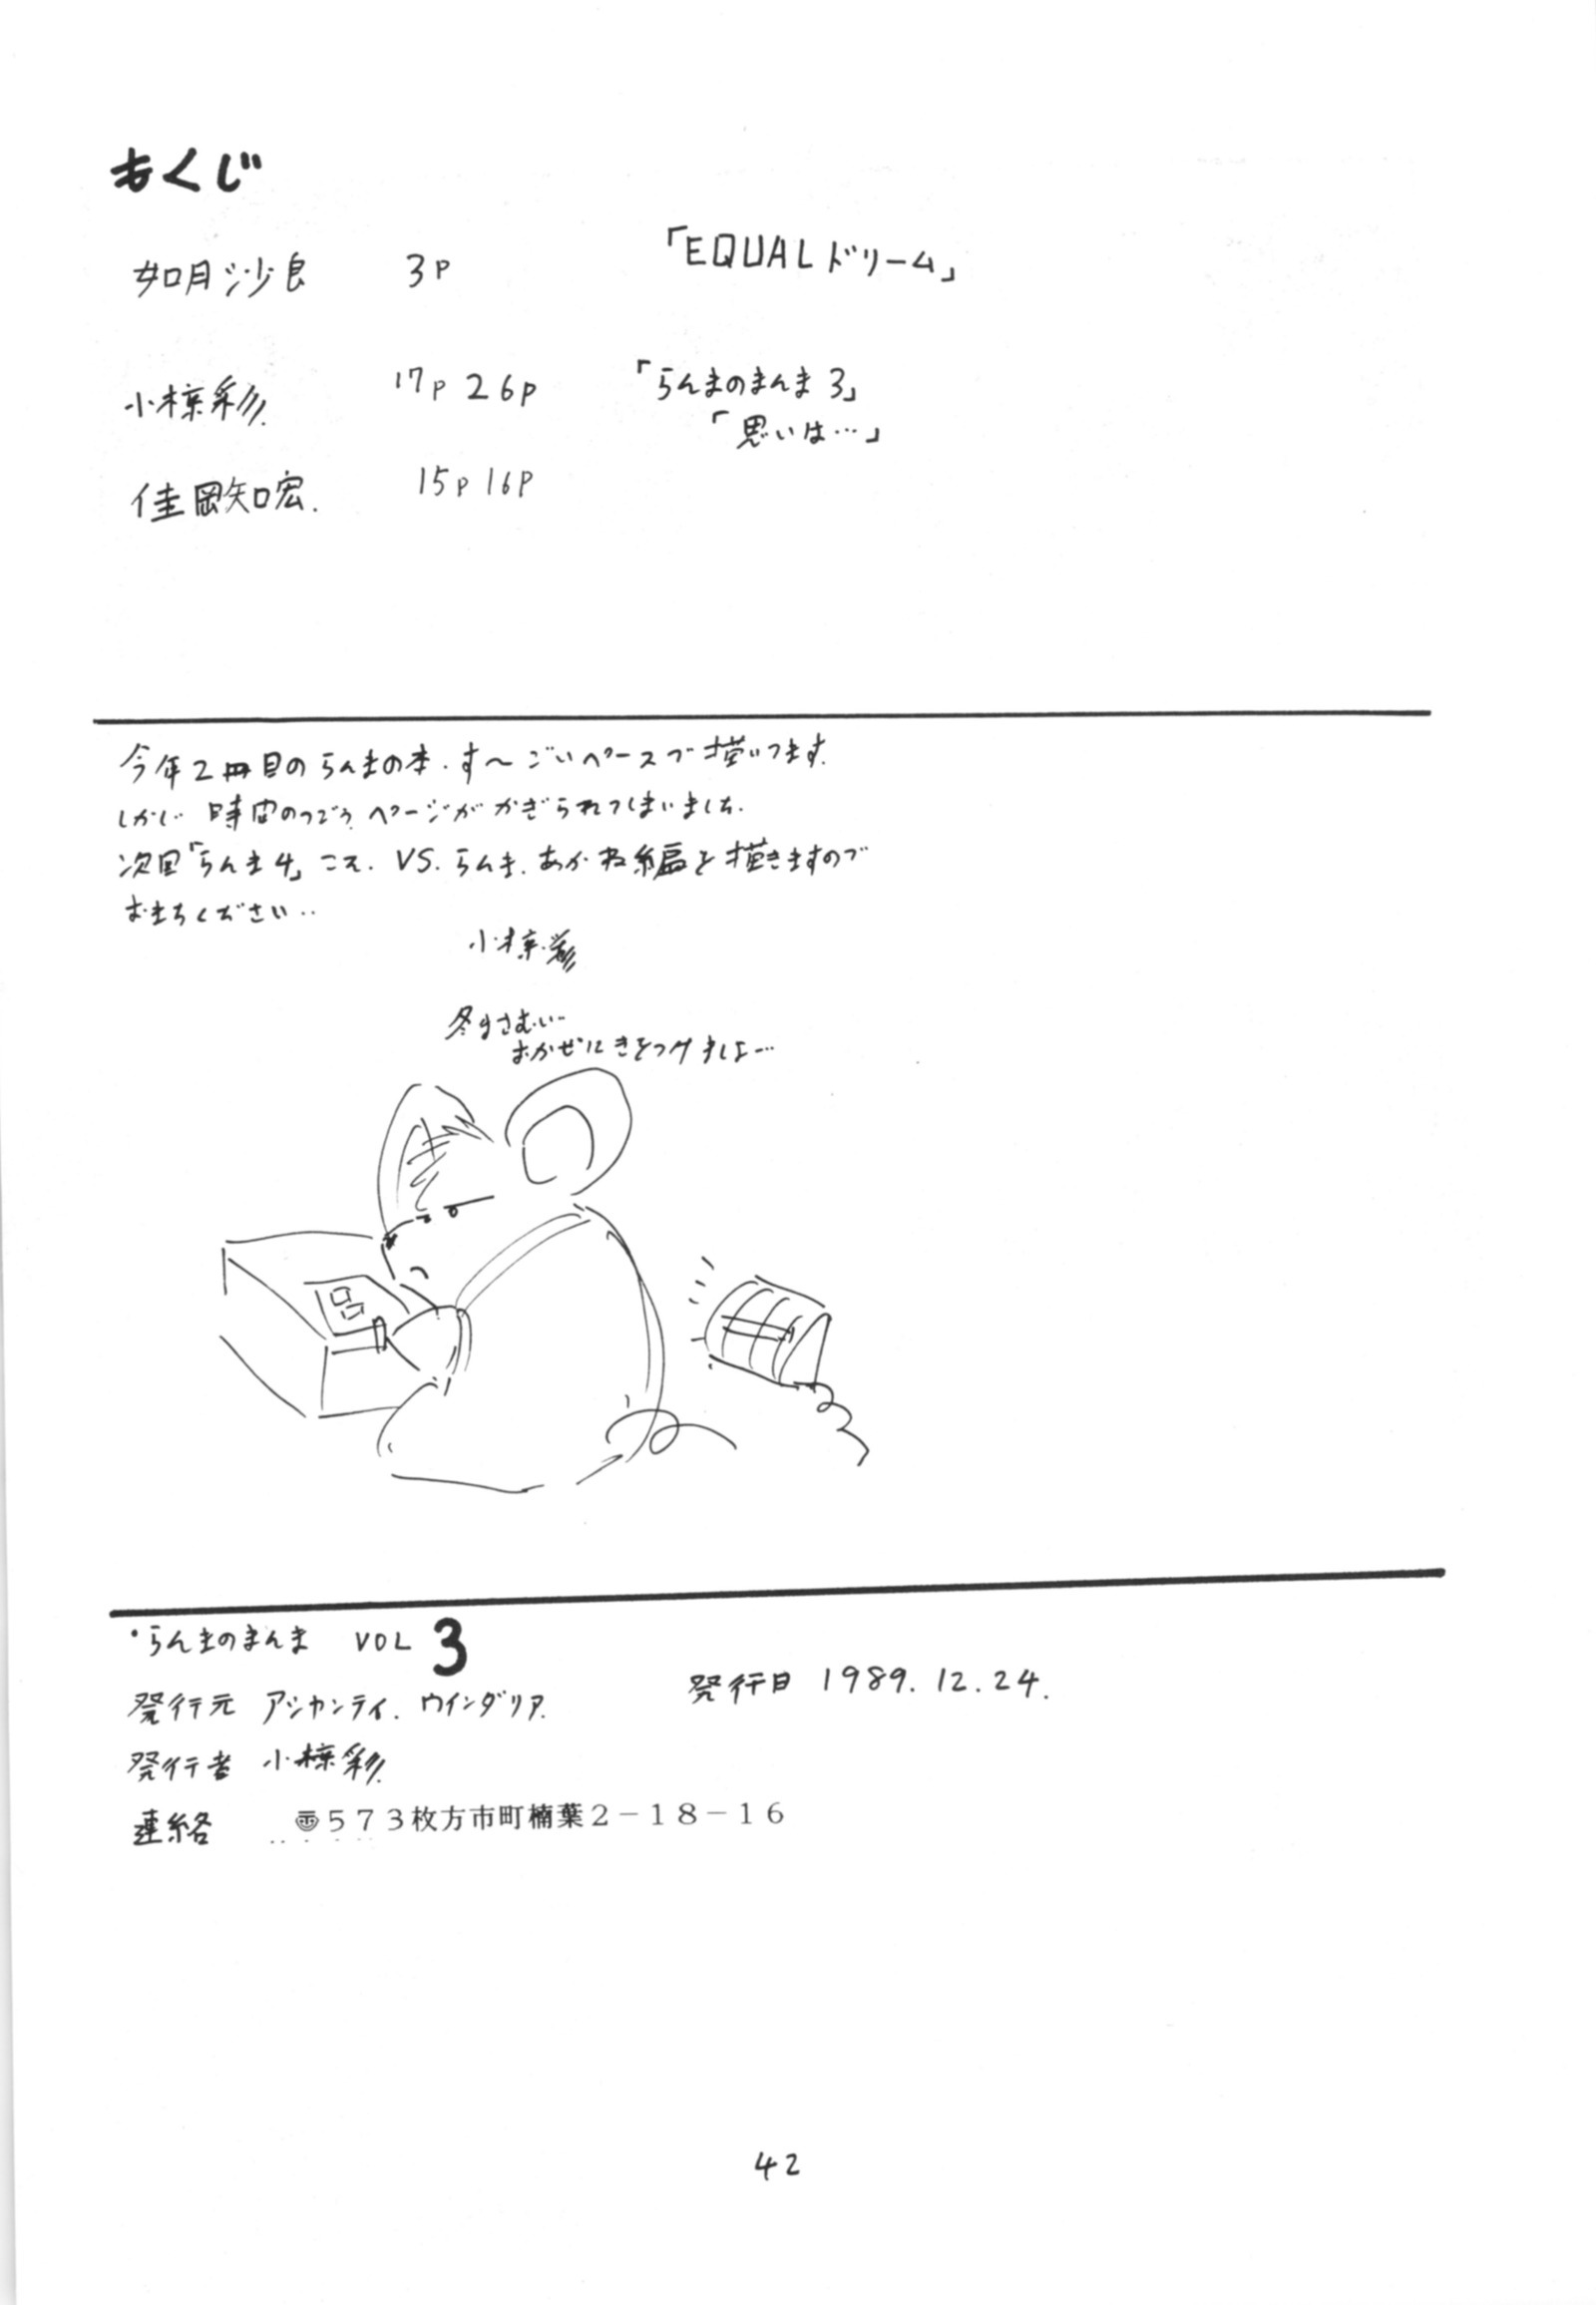 もくじ
如月沙良 3P 「EQUALドリーム」
小椋彩 17P 26P 「らんまのまんま3」
「思いは…」
佳岡知宏. 15P 16P
今年2冊目のらんまの本.す〜ごいペースで描いてます.
しかし 時間のつごう ページがかぎられてしまいました.
次回「らんま4」こそ. VS. らんま.あかね編を描きますので
おまちください‥
小椋彩
冬わさむい…
おかぜにきをつけましょー…
・らんまのまんま VOL 3
発行元 アシャンティ. ウインダリア. 発行日 1989.12.24.
発行者 小椋彩
連絡 〠573枚方市町楠葉2−18−16
42